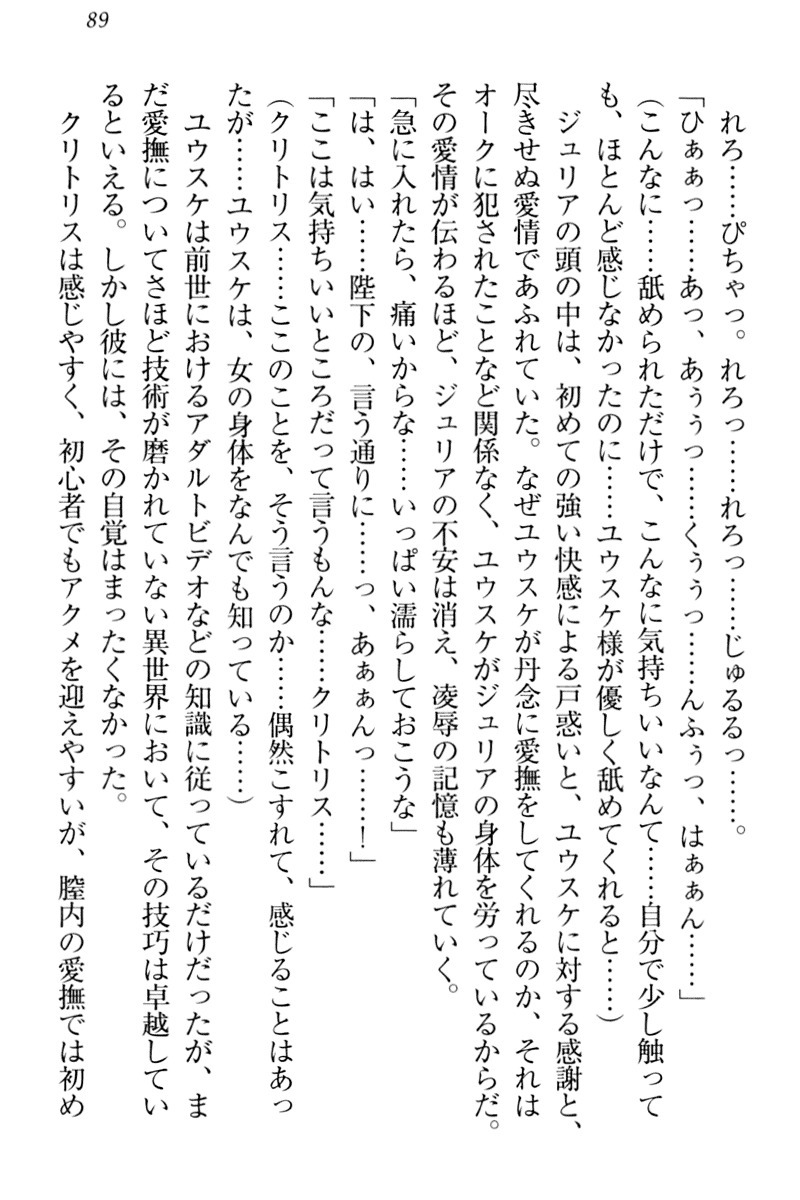 89
れろ……ぴちゃっ。れろっ……れろっ……じゅるるっ……。
「ひぁぁっ……あっ、あぅぅっ……くぅぅっ……んふぅっ、はぁぁん……」
（こんなに……舐められただけで、こんなに気持ちいいなんて……自分で少し触って
も、ほとんど感じなかったのに……ユウスケ様が優しく舐めてくれると……）
ジュリアの頭の中は、初めての強い快感による戸惑いと、ユウスケに対する感謝と、
尽きせぬ愛情であふれていた。なぜユウスケが丹念に愛撫をしてくれるのか、それは
オークに犯されたことなど関係なく、ユウスケがジュリアの身体を労っているからだ。
その愛情が伝わるほど、ジュリアの不安は消え、凌辱の記憶も薄れていく。
「急に入れたら、痛いからな……いっぱい濡らしておこうな」
「は、はい……陛下の、言う通りに……っ、あぁぁんっ……！」
「ここは気持ちいいところだって言うもんな……クリトリス……」
（クリトリス……ここのことを、そう言うのか……偶然こすれて、感じることはあっ
たが……ユウスケは、女の身体をなんでも知っている……）
ユウスケは前世におけるアダルトビデオなどの知識に従っているだけだったが、ま
だ愛撫についてさほど技術が磨かれていない異世界において、その技巧は卓越してい
るといえる。しかし彼には、その自覚はまったくなかった。
クリトリスは感じやすく、初心者でもアクメを迎えやすいが、膣内の愛撫では初め